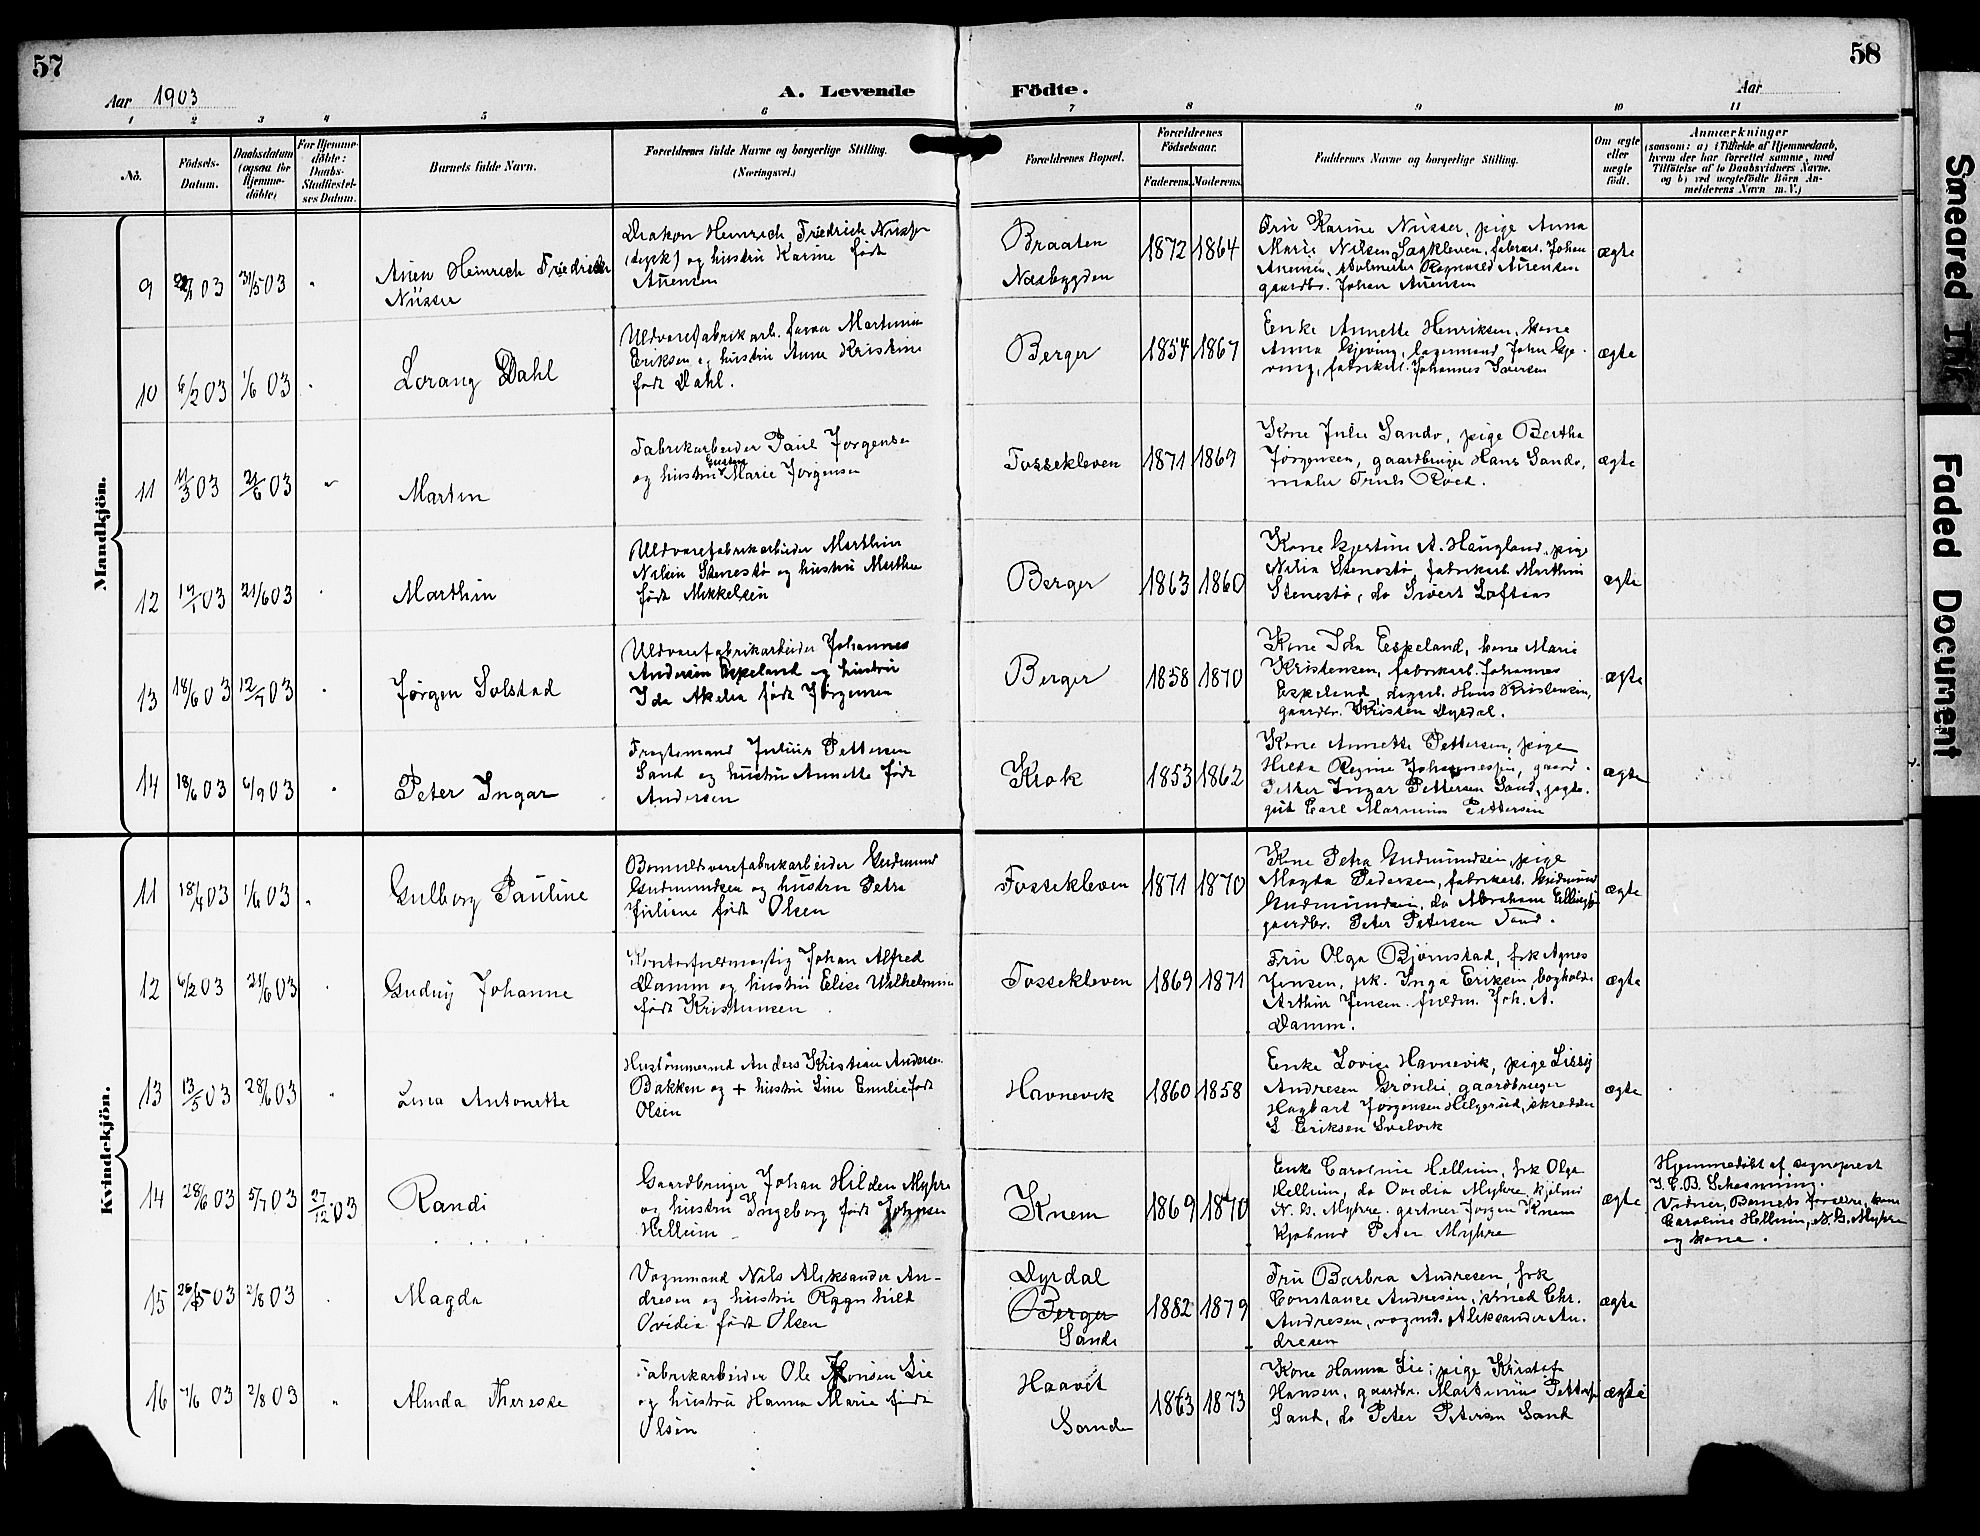 57
Aar 1903
A. Levende
Födte.
58
Aar
1 2 3 4 5 6 7 8 9 10 11
No.
Födsels-
Datum.
Daabsdatum
(ogsaa for
Hjemme-
døbte)
For Hjemme-
döbte:
Daabs-
Stadfæstel-
ses Datum.
Barnets fulde Navn.
Forældrenes fulde Navne og borgerlige Stilling.
(Næringsvei.)
Forældrenes Bopæl.
Forældrenes
Födselsaar.
Faderens. Moderens.
Faddernes Navne og borgerlige Stilling.
Om ægte
eller
uægte
födt.
Anmærkninger
(saasom: a) i Tilfælde af Hjemmedaab,
hvem der har forrettet samme, med
Tilföielse af to Daabsvidners Navne,
og b) ved uægtefödte Börn An-
melderens Navn m. V.)
Mandkjön.
9 03 31/5 03
Heinrich Friedrich
Nüsser
Diakon Heinrich Friedrich Nüsser
(tysk) og hustru Karine født
Braaten
Nesbygden
1872 1864
Fru Karine Nüsser, pige Anna
Marie Nilsen Sagkleven, fabrarb. Johan
gaardbr. Johan
ægte
10 6/2 03 1/6 03
Lorang Dahl
Uldvarefabrikarb. Martinius
Eriksen og hustru Anna Kristine
født Dahl.
Berger
1854 1867
Enke Annette Henriksen, kone
Anna Gjeving, lagermand John Gje-
ving, fabrikarb. Johannes Iversen
ægte
11 03 21/6 03
Martin
Fabrikarbeider Paul Jørgensen
og hustru Gustava Marie Jørgensen
Fossekleven
1871 1869
Kone Julie Sando, pige Bertha
Jørgensen, gaardbruger Hans Sando,
maler Truls Röed.
ægte
12 03 21/6 03
Marthin
Uldvarefabrikarbeider Marthin
Nilsen Stenestø og hustru Marthea
født Mikkelsen
Berger
1863 1860
Kone Kjerstine A. Haugland, pige
Nilia Stenestø, fabrikarb. Marthin
Stenestø, do Sivert Loftsaas
ægte
13 18/6 03 12/7 03
Jørgen Solstad
Uldvarefabrikarbeider Johannes
Andersen Espeland og hustru
Ida Akelia født Jørgensen
Berger
1858 1870
Kone Ida Espeland, kone Marie
Kristensen, fabrikarb. Johannes
Espeland, dagarb. Hans Kristensen,
gaardbr. Kristen Dyrdal.
ægte
14 18/6 03 6/9 03
Peter Ingar
Fragtemand Julius Pettersen
Sand og hustru Annette født
Andersen
Krok
1853 1862
Kone Annette Pettersen, pige
Hilda Regine Johannessen, gaard-
Petter Ingar Pettersen Sand, jagte-
gut Carl Marinius Pettersen
ægte
Kvindekjön.
11 18/4 03 1/6 03
Gulborg Pauline
Bomuldsvarefabrikarbeider Gudmund
Gudmundsen og hustru Petra
Juliane født Olsen
Fossekleven
1871 1870
Kone Petra Gudmundsen, pige
Magda Pedersen, fabrikarb. Gudmund
Gudmundsen, do Abraham Ellingsen
gaardbr. Peter Petersen Sand.
ægte
12 6/2 03 21/6 03
Gudny Johanne
Kontorfuldmægtig Johan Alfred
Damm og hustru Elise Wilhelmine
født Kristensen
Fossekleven
1869 1871
Fru Olga Bjørnstad, frk Agnes
Jensen, frk. Inga Eriksen, bogholder
Arthur Jensen, fuldm. Joh. A.
Damm.
ægte
13 13/5 03 28/6 03
Lina Antonette
Hustømmermand Anders Kristian Andersen
Bakken og + hustru Line Emilie født
Olsen
Havnevik
1860 1858
Enke Lovise Havnevik, pige Lissy
Andresen Grønli, gaardbruger
Hagbart Jørgensen Helgerud, skrædder
S Eriksen Svelvik
ægte
14 28/6 03 5/7 03 27/12 03
Randi
Gaardbruger Johan Hilden Myhre
og hustru Ingeborg født Johnsen
Hellum
Knem
1869 1870
Enke Caroline Hellum, frk Olga
Hellum, do Ovidia Myhre, kjøbmd
N. G. Myhre, gartner Jørgen Knem
kjøbmd Peter Myhre
ægte
Hjemmedøbt af sogneprest
Vidner, Barnets forældre, kone
Caroline Hellum, N. G. Myhre
og kone.
15 26/5 03 2/8 03
Magda
Vognmand Nils Aleksander An-
dresen og hustru Ragnhild
Ovidia født Olsen
Dyrdal
Berger
Sande
1882 1879
Fru Barbra Andresen, frk
Constance Andresen, smed Chr.
Andresen, vognmd. Aleksander An-
dresen
ægte
16 7/6 03 2/8 03
Alvida Therese
Fabrikarbeider Ole Hansen Lie
og hustru Hanna Marie født
Olsen
Haavet
Sande
1863 1873
Kone Hanna Lie, pige Kristofa
Hansen, gaardbr. Martinius Petters
Sand, do Peter Petersen Sand
ægte
Smeared Ink
Faded Document